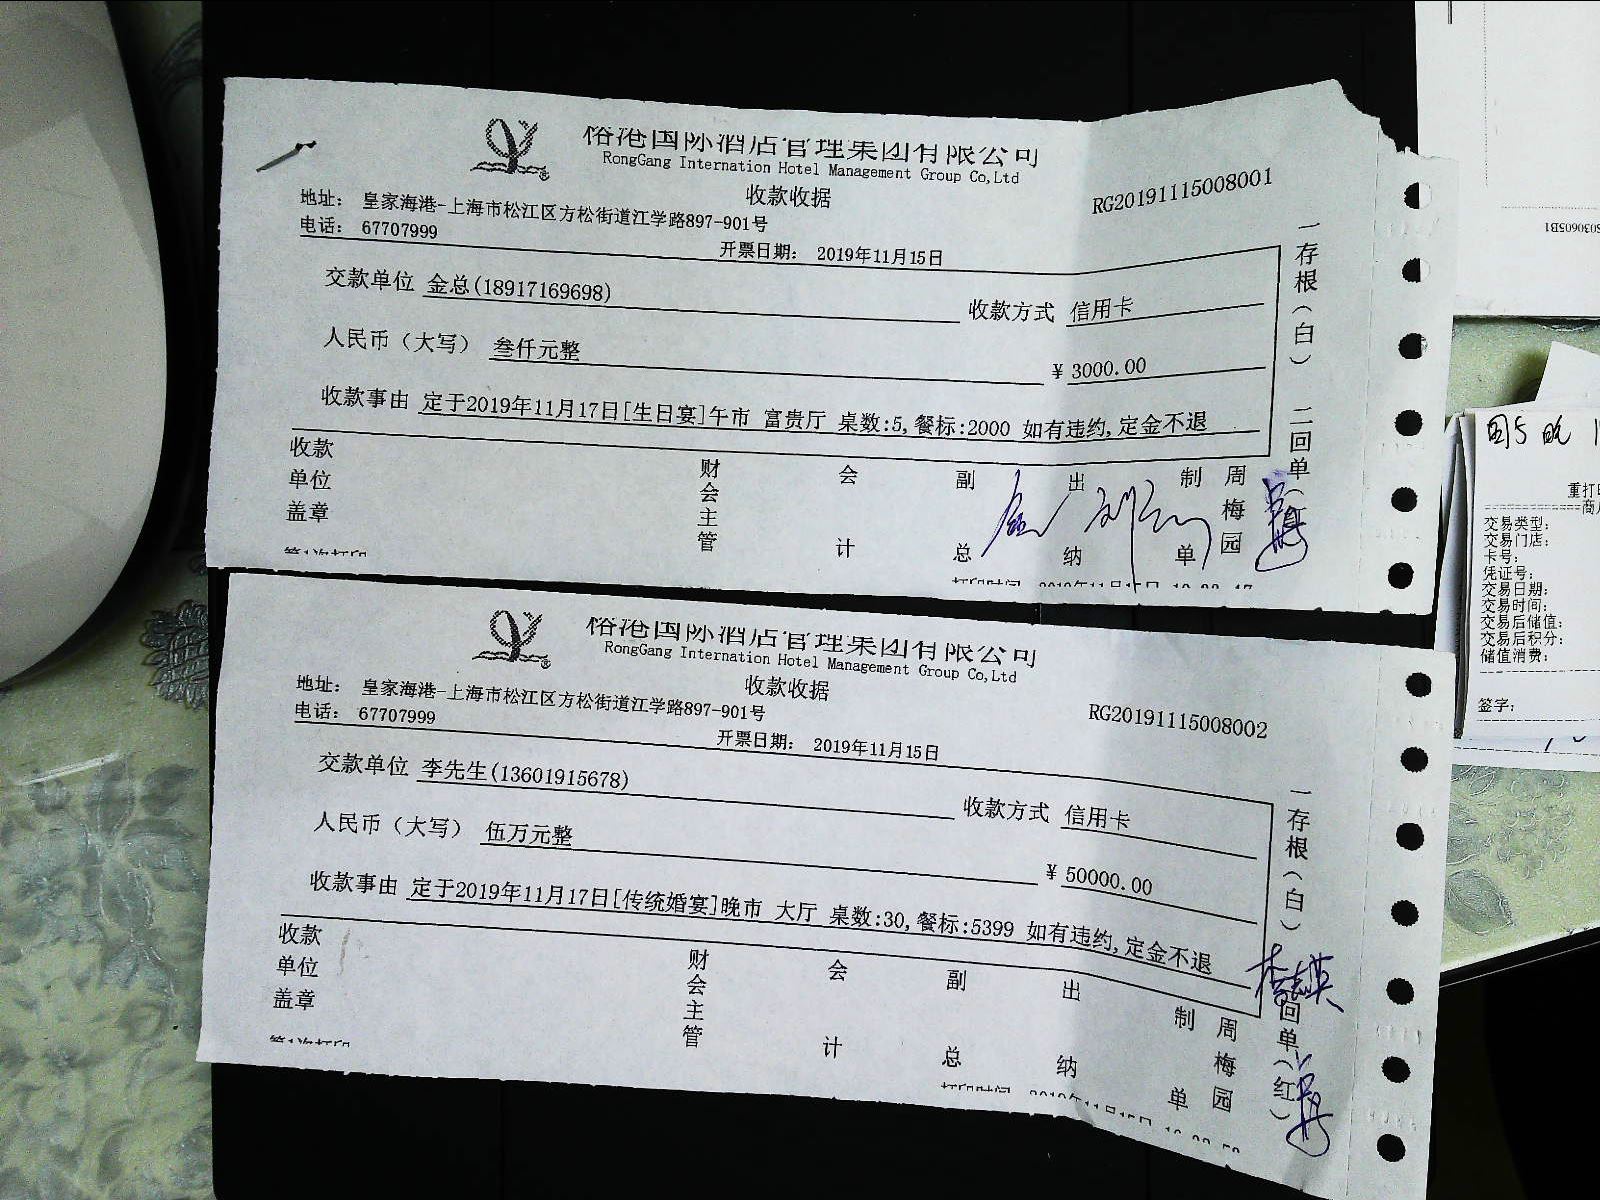 裕港国际酒店管理集团有限公司
RongGang Internation Hotel Management Group Co,Ltd
收款收据
RG20191115008001
地址： 皇家海港-上海市松江区方松街道江学路897-901号
电话： 67707999
开票日期： 2019年11月15日
交款单位 金总(18917169698)
收款方式 信用卡
人民币（大写） 叁仟元整
¥ 3000.00
收款事由 定于2019年11月17日[生日宴]午市 富贵厅 桌数:5,餐标:2000 如有违约,定金不退
收款单位盖章
财会主管
会计
副总
出纳
制单
周梅园
一存根（白） 二回单（红
第1次打印
裕港国际酒店管理集团有限公司
RongGang Internation Hotel Management Group Co,Ltd
收款收据
RG20191115008002
地址： 皇家海港-上海市松江区方松街道江学路897-901号
电话： 67707999
开票日期： 2019年11月15日
交款单位 李先生(13601915678)
收款方式 信用卡
人民币（大写） 伍万元整
¥ 50000.00
收款事由 定于2019年11月17日[传统婚宴]晚市 大厅 桌数:30,餐标:5399 如有违约,定金不退
收款单位盖章
财会主管
会计
副总
出纳
制单
周梅园
一存根（白） 回单（红）
第1次打印
S030605B1
重打印
交易类型：
交易门店：
卡号：
凭证号：
交易日期：
交易时间：
交易后储值：
交易后积分：
储值消费：
签字：